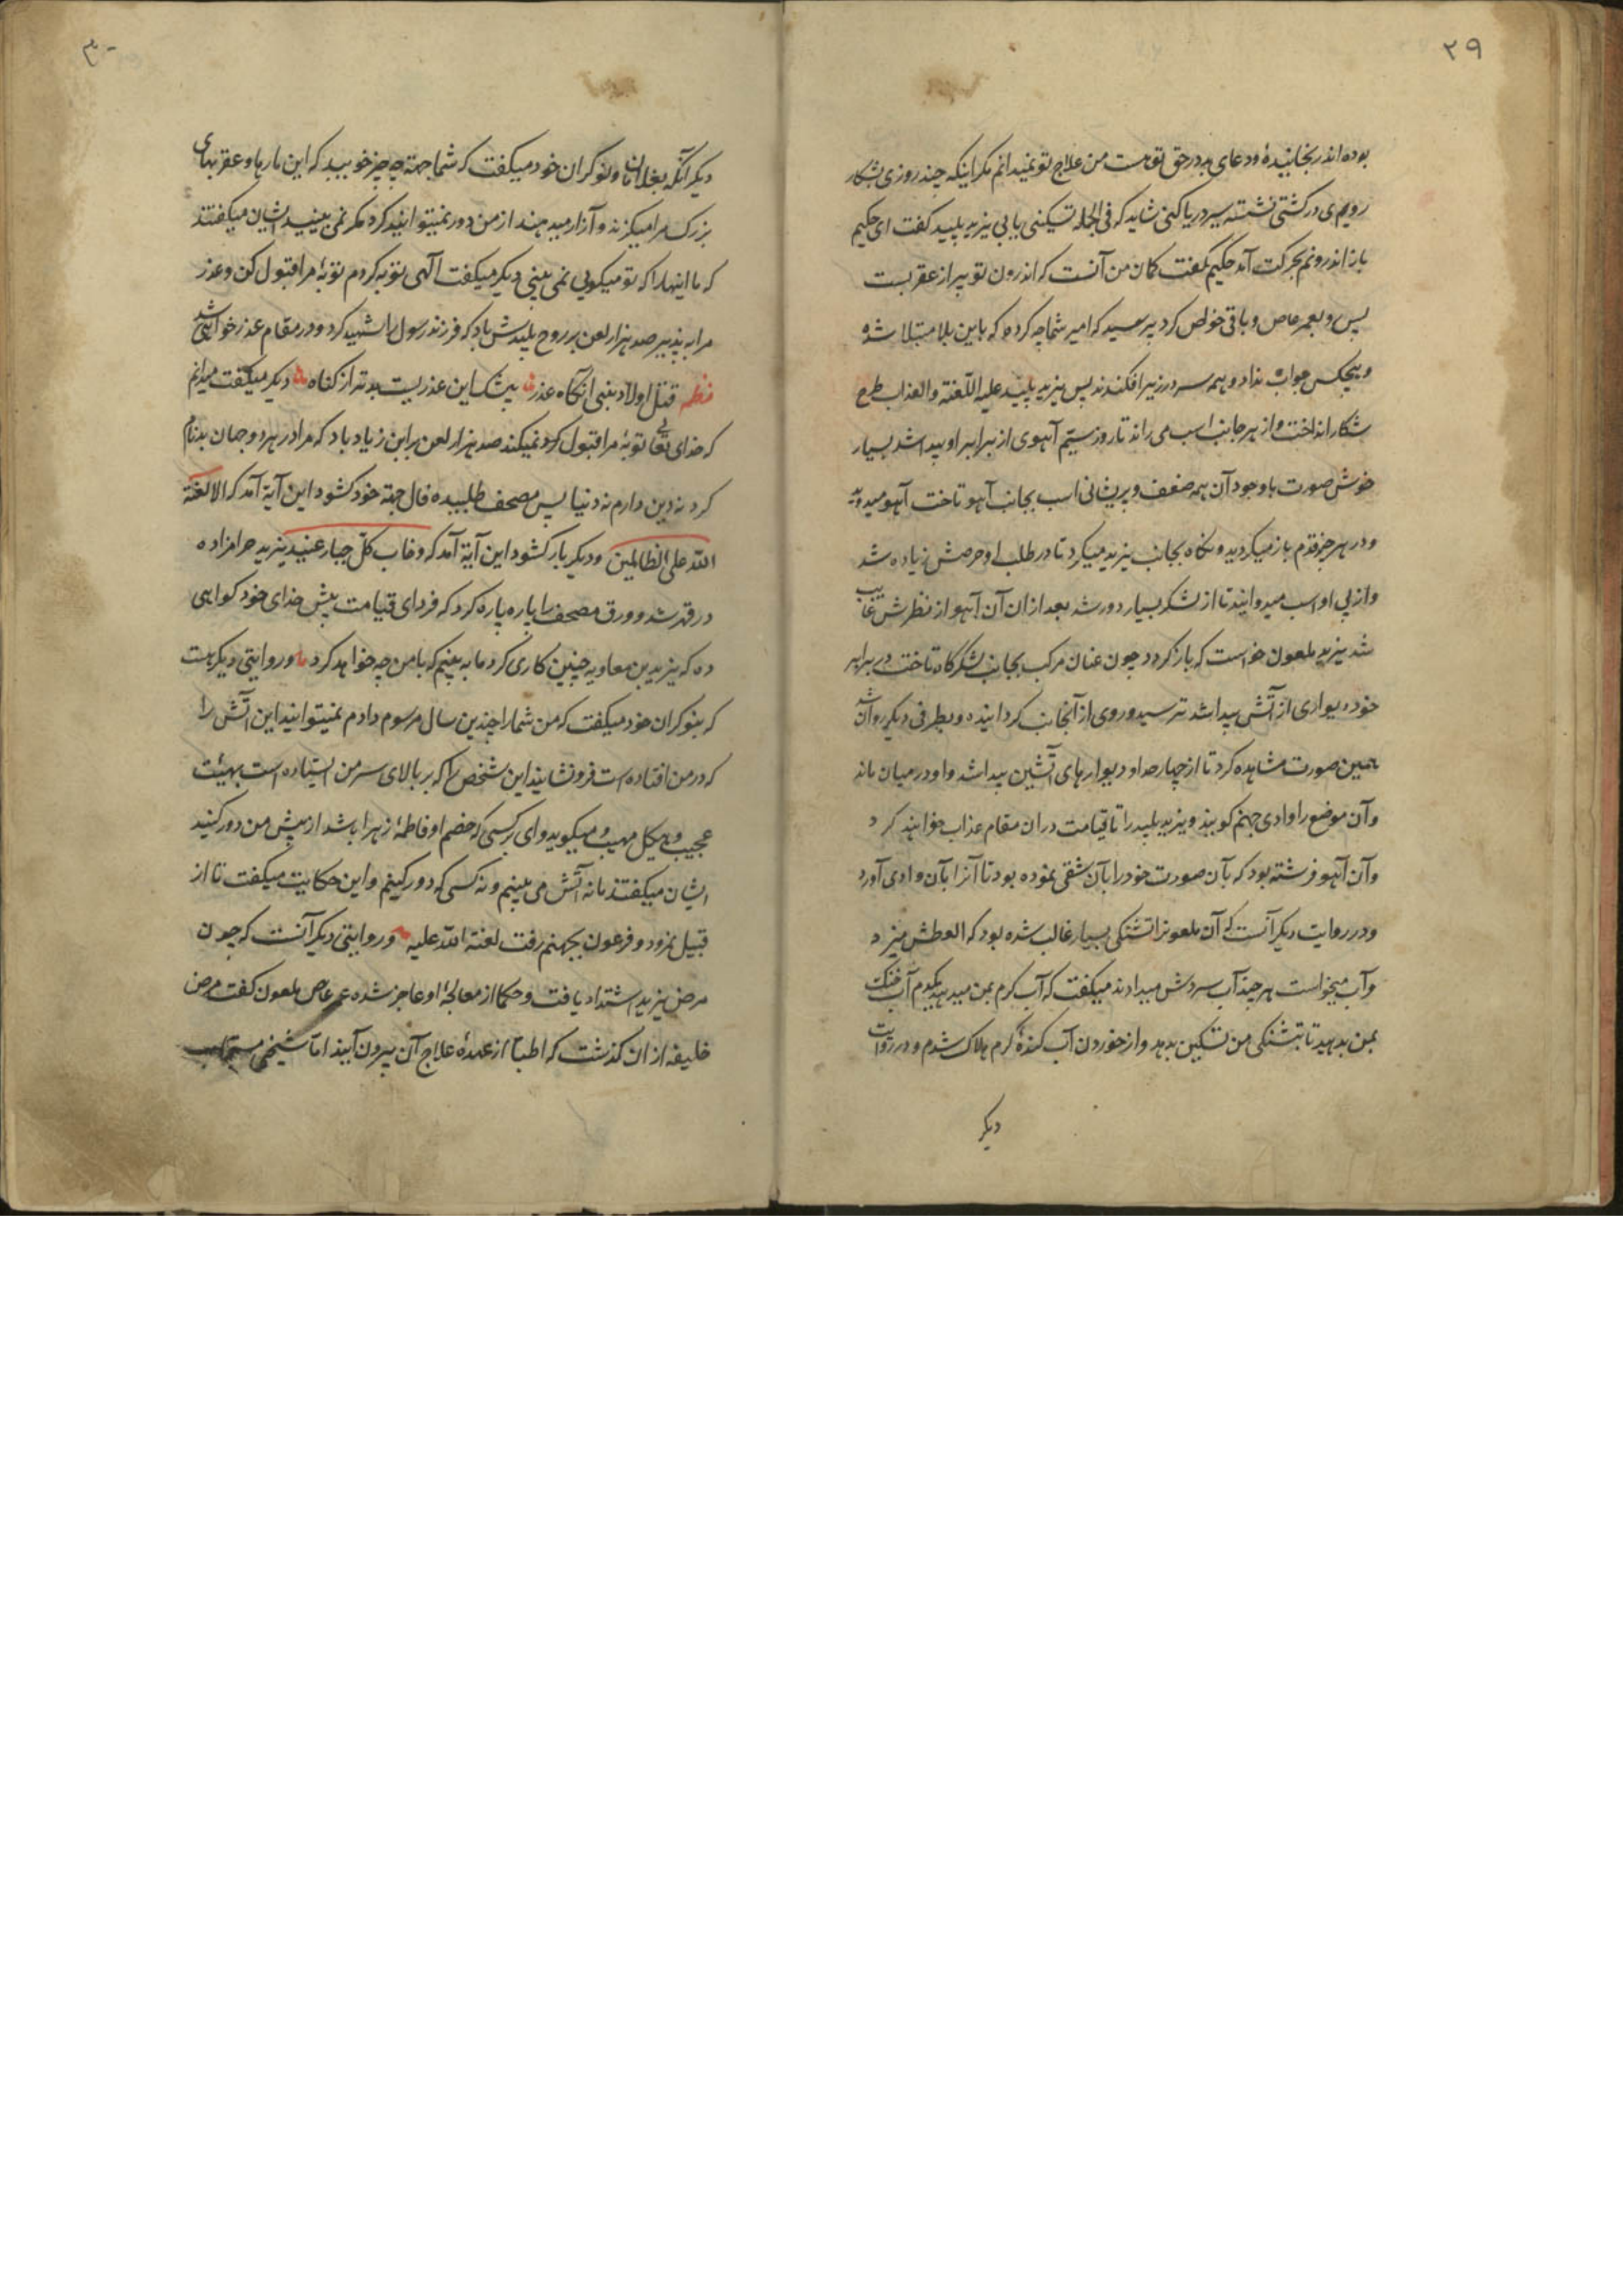 ۲۹
بوده‌اند رنجانیدهٔ و دعای بد در حق تو هست من علاج تو نمیدانم مکر اینکه چند روزی بشکار
رویم در کشتی نشسته سیر دریا کنی شاید که فی الجمله تسکینی یابی یزید پلید کفت ای حکیم
باز اندرونم بحرکت آمد حکیم بکفت کمان من آنست که اندرون تو پر از عقربست
پس رو بعمر عاص و باقی خواص کرد پرسید که امیر شما چه کرده که باین بلا مبتلا شده
و هیچکس جواب نداد و همه سر در زیر افکندند پس یزید پلید علیه اللعنة والعذاب طرح
شکار انداخت و از هر جانب اسب می راند تا روز سیّم آهوی از برابر او پیدا شد بسیار
خوش صورت با وجود آن همه ضعف و پریشانی اسب بجانب آهو تاخت آهو میدوید
و در هر چند قدم باز میکردید و نکاه بجانب یزید میکرد تا در طلب او حرصش زیاده شد
و از پی او اسب میدوانید تا از لشکر بسیار دور شد بعد از ان آن آهو از نظرش غایب
شد یزید ملعون خواست که باز کردد چون عنان مرکب بجانب لشکرکاه تاخت در برابر
خود دیواری از آتش پیدا شد ترسید و روی از آنجانب کردانیده و بطرفی دیکر روان شد
همین صورت مشاهده کرد تا از چهار حد او دیوارهای آتشین پیدا شد و او در میان ماند
و آن موضع را وادی جهنم کویند و یزید پلید را تا قیامت در ان مقام عذاب خواهند کرد
و آن آهو فرشته بود که بآن صورت خود را بآن شقی نموده بود تا آنرا بآن وادی آورد
و در روایت دیکر آنست که آن ملعونرا تشنکی بسیار غالب شده بود که العطش میزد
و آب میخواست هر چند آب سردش میدادند میکفت که آب کرم بمن میدهید یکدم آب خنک
بمن بدهید تا بتشنکی من تسکین بدهد و از خوردن آب کندهٔ کرم هلاک شدم و در روایت
دیکر
۳۰
دیکر آنکه بغلامان و نوکران خود میکفت که شما جهة چه چیز خوبید که این مارها و عقربهای
بزرک مرا میکزند و آزار میدهند از من دور نمیتوانید کرد مکر نمی بینید ایشان میکفتند
که ما اینها را که تو میکویی نمی بینیم دیکر میکفت الهی توبه کردم توبهٔ مرا قبول کن و عذر
مرا بپذیر صد هزار لعن بر روح پلیدش باد که فرزند رسول را شهید کرد و در مقام عذر خواهی شد
نظم قتل اولاد نبی آنکاه عذر بیشک این عذریست بدتر از کناه دیکر میکفت میدانم
که خدای تعالی توبهٔ مرا قبول نمیکند صد هزار لعن بر ابن زیاد باد که مرا در هر دو جهان بدنام
کرد نه دین دارم نه دنیا پس مصحف طلبیده فال جهة خود کشود این آیة آمد که الا لعنة
الله علی الظالمین و دیکر بار کشود این آیة آمد که و خاب کل جبار عنید یزید حرامزاده
در قهر شد و ورق مصحف را پاره پاره کرد که فردای قیامت پیش خدای خود کواهی
ده که یزید بن معاویه چنین کاری کرد ما به بینیم که با من چه خواهد کرد و روایتی دیکر هست
که بنوکران خود میکفت که من شما را چندین سال مرسوم دادم نمیتوانید این آتش را
که در من افتاده است فرو نشانید این شخص را که بر بالای سر من ایستاده است بهیئت
عجیب و هیکل مهیب و میکوید وای بر کسی که خصم او فاطمهٔ زهرا باشد از پیش من دور کنید
ایشان میکفتند ما نه آتش می بینیم و نه کسی که دور کنیم و این حکایت میکفت تا از
قبیل نمرود و فرعون بجهنم رفت لعنة الله علیه و روایتی دیکر آنست که چون
مرض یزید اشتداد یافت و حکما از معالجهٔ او عاجز شده عمر عاص ملعون کفت مرض
خلیفه از ان کذشت که اطبّا از عهدهٔ علاج آن بیرون آیند امّا شیخی مستجاب